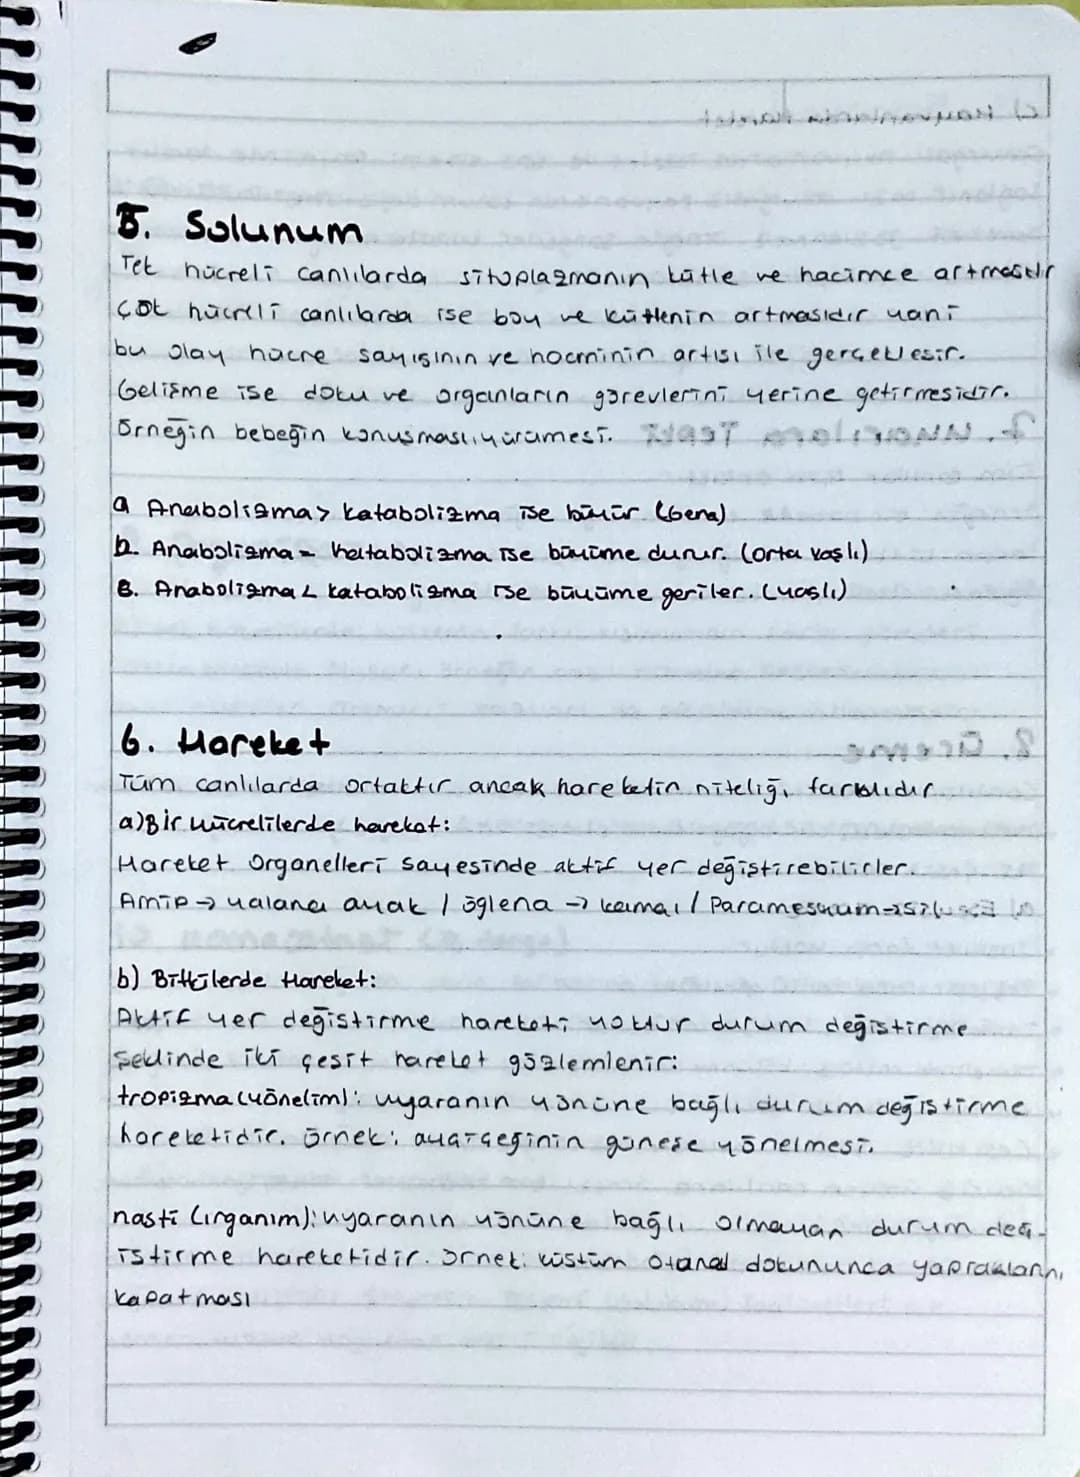 5. Solunum
Tek hücreli canlılarda sitoplazmanın kütle ve hacimce artmasıdır
Çok hücreli canlılarda ise boy ve kütlenin artmasıdır yani
bu olay hücre sayısının ve hacminin artısı ile gerçeklesir.
Gelişme ise doku ve organların görevlerini yerine getirmesidir.
Örneğin bebeğin konusması, yürümesi.
a Anabolizma > katabolizma ise büyür (Genç)
b. Anabolizma = katabolizma ise büyüme durur. (orta yaşlı)
c. Anabolizma < katabolizma ise büyüme geriler. (yaslı)
6. Hareket
Tüm canlılarda ortaktır ancak hareketin niteliği farklıdır
a) Bir hücrelilerde hareket:
Hareket Organelleri sayesinde aktif yer değiştirebilirler.
Amip → yalancı ayak / öglena → kamçı / Paramesyum → sil
b) Bitkilerde Hareket:
Aktif yer değistirme hareketi yoktur durum değistirme
seklinde iki çesit hareket gözlemlenir:
tropizma (yönelim): uyaranın yönüne bağlı durum değistirme
hareketidir. örnek: ayçiçeğinin günese yönelmesi.
nasti (ırganım): uyaranın yönüne bağlı olmayan durum değ-
istirme hareketidir. örnek: küstüm otanal dokununca yapraklarını
kapatması